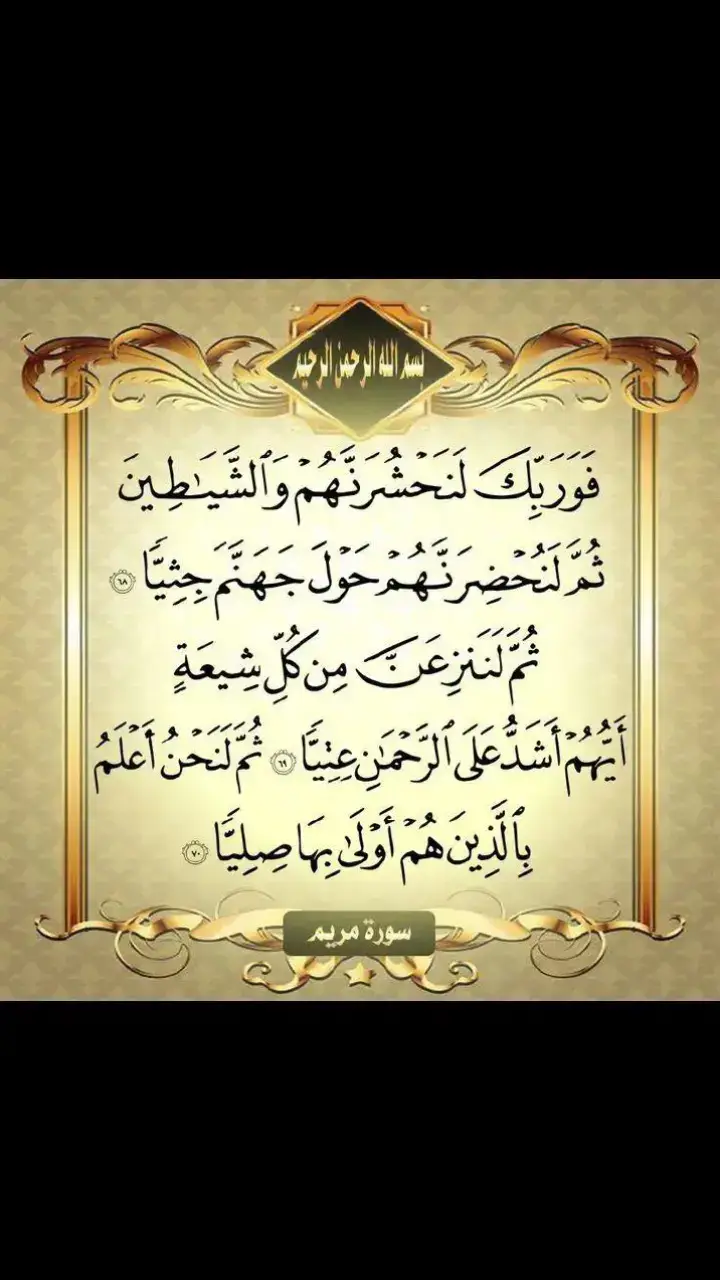 بسم الله الرحمن الرحيم
فَوَرَبِّكَ لَنَحْشُرَنَّهُمْ وَٱلشَّيَـٰطِينَ
ثُمَّ لَنُحْضِرَنَّهُمْ حَوْلَ جَهَنَّمَ جِثِيًّا ٦٨
ثُمَّ لَنَنزِعَنَّ مِن كُلِّ شِيعَةٍ
أَيُّهُمْ أَشَدُّ عَلَى ٱلرَّحْمَـٰنِ عِتِيًّا ٦٩ ثُمَّ لَنَحْنُ أَعْلَمُ
بِٱلَّذِينَ هُمْ أَوْلَىٰ بِهَا صِلِيًّا ٧٠
سورة مريم